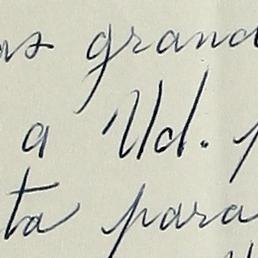 as grand
a Ud. p
ta para